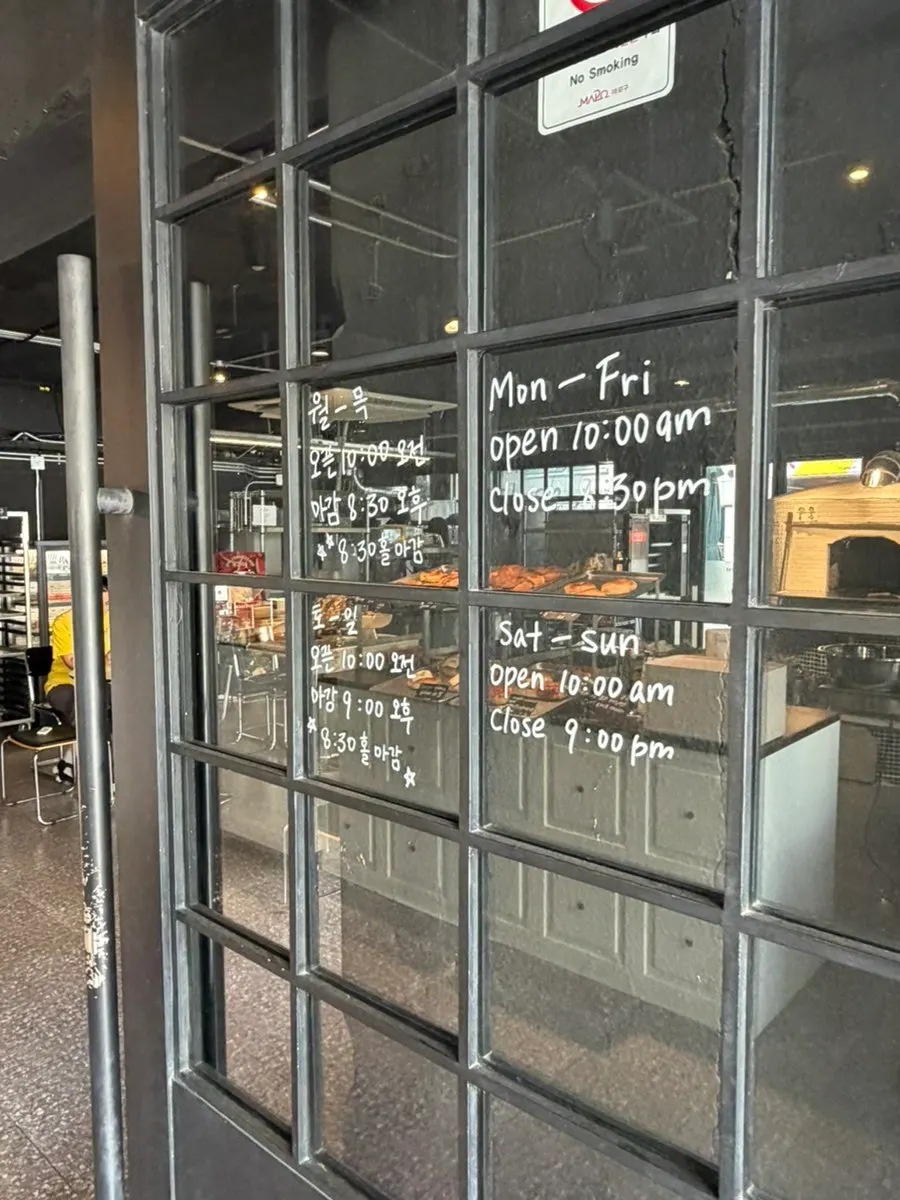 No Smoking
MAPO 마포구
월 - 목
오픈 10:00 오전
마감 8:30 오후
** 8:30 홀 마감
토 - 일
오픈 10:00 오전
마감 9:00 오후
* 8:30 홀 마감 *
Mon - Fri
open 10:00 am
close 8:30 pm
Sat - sun
open 10:00 am
close 9:00 pm